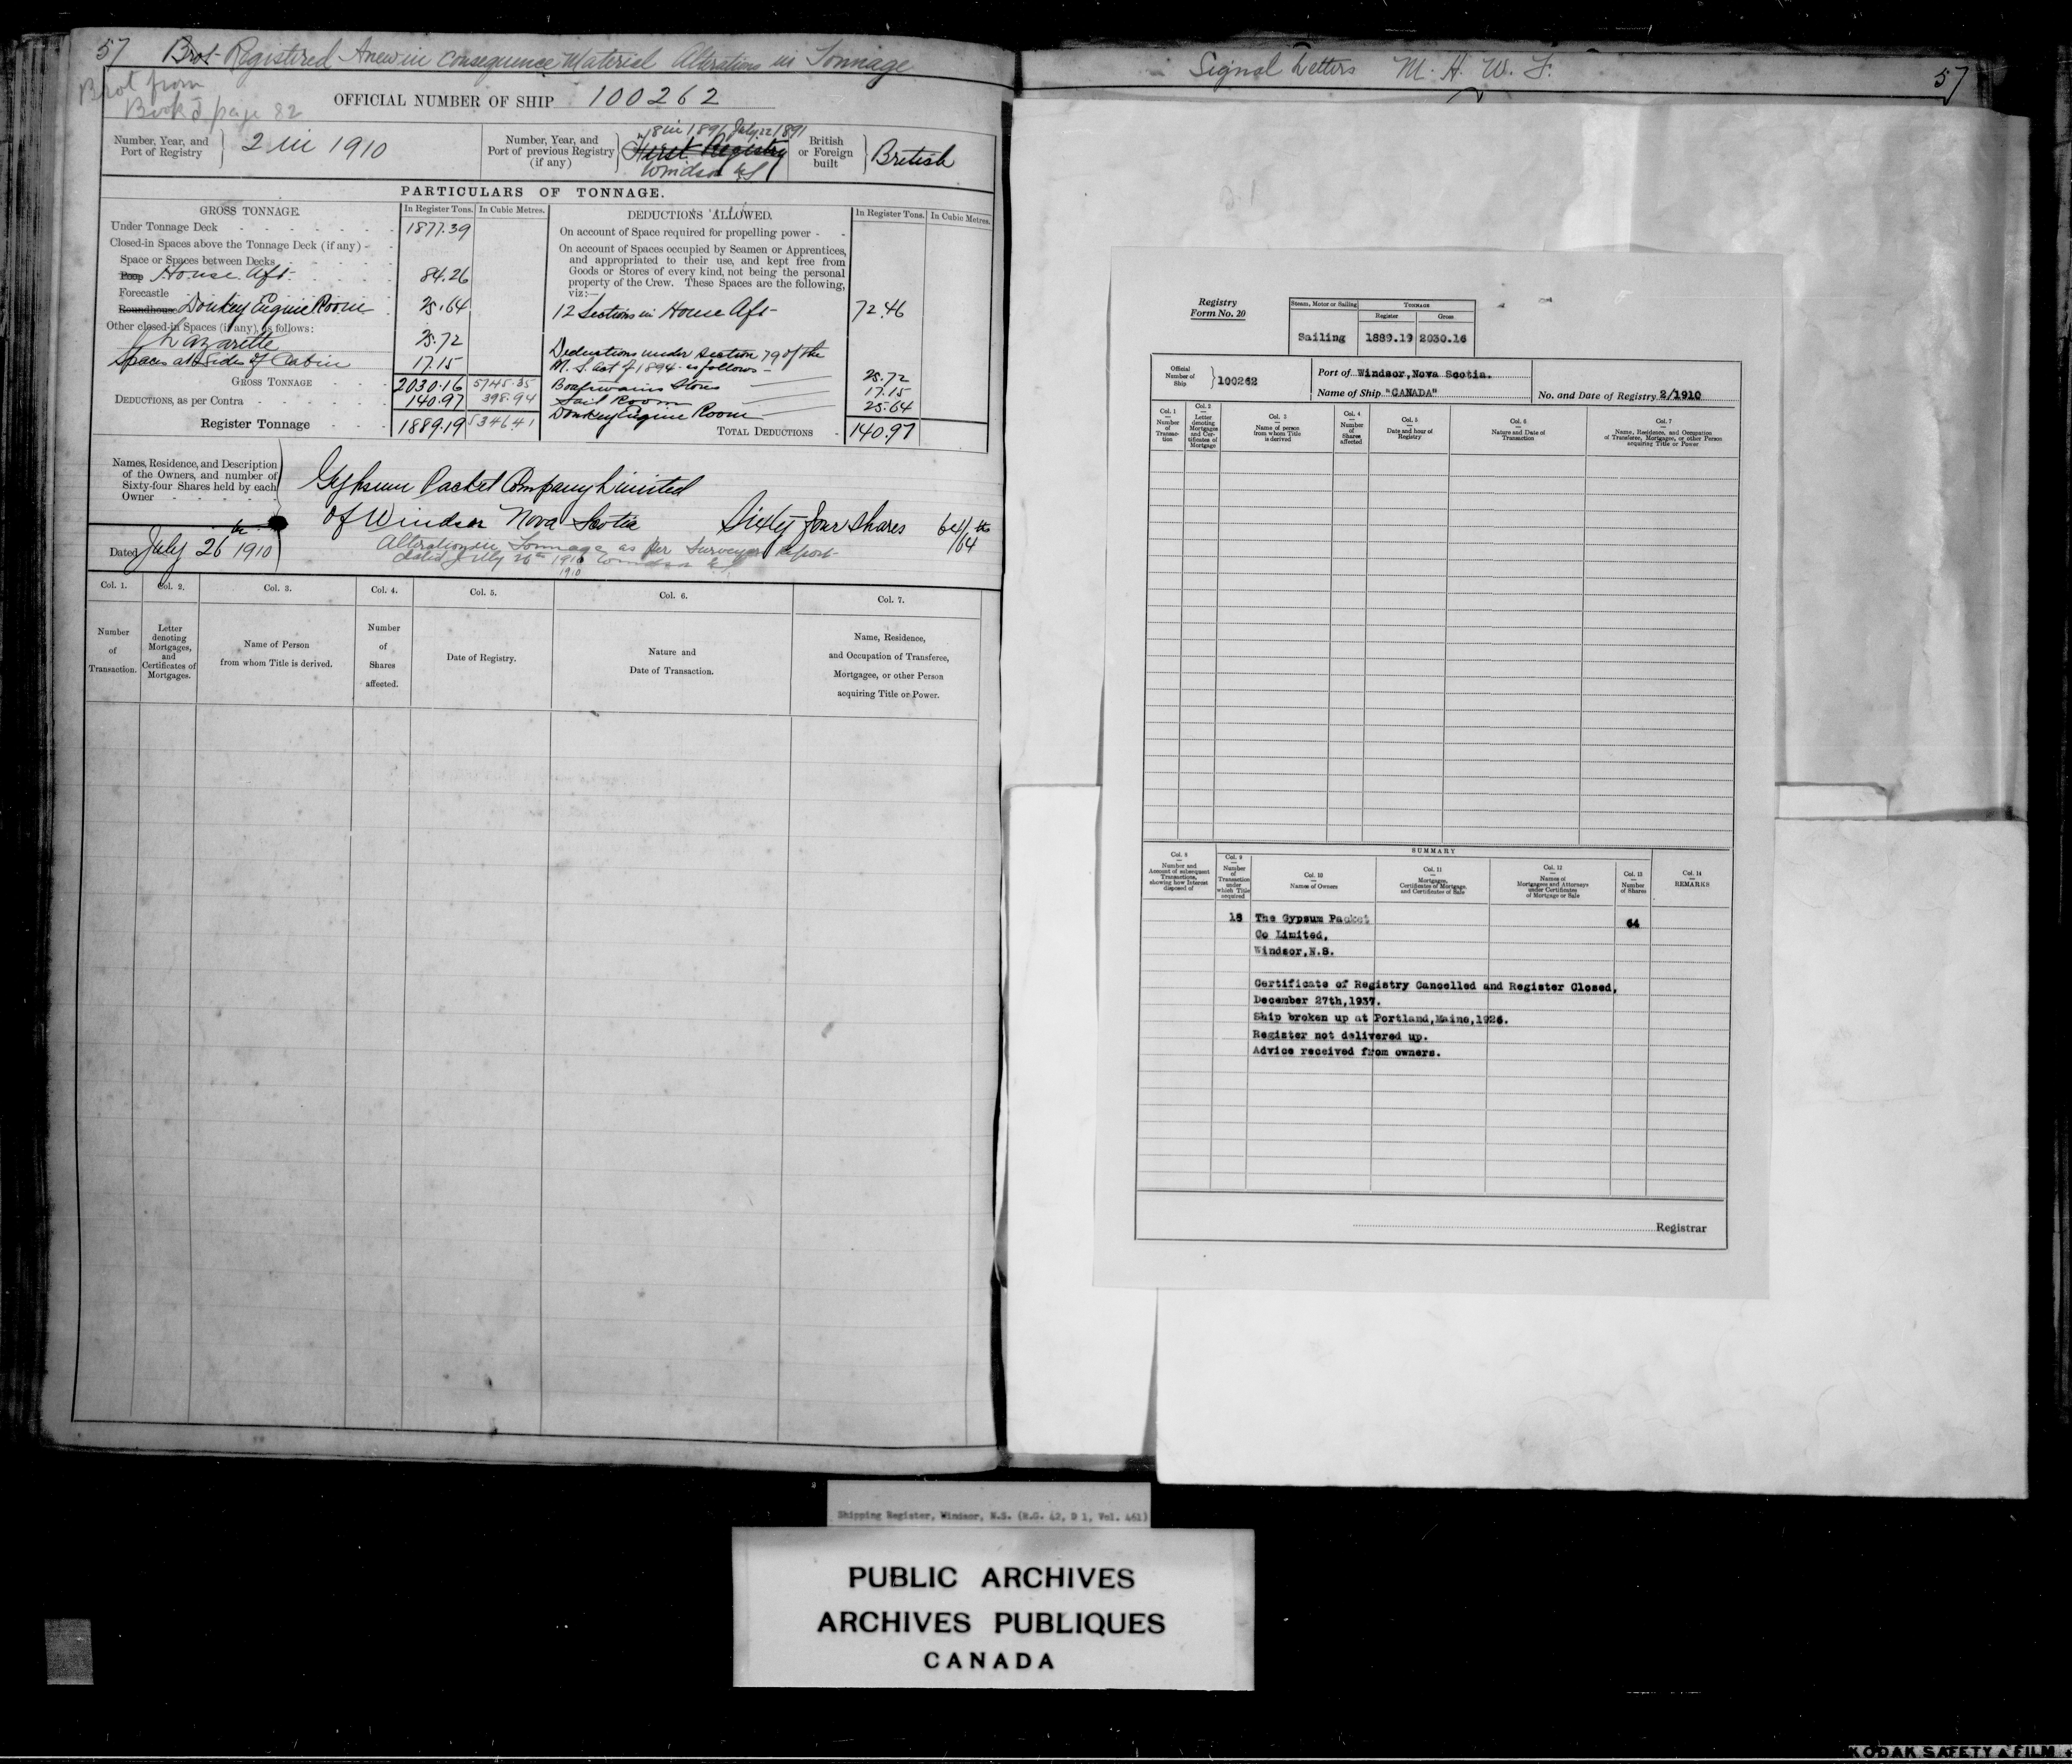 57 Brot Registered Anew in Consequence Material Alterations in Tonnage
Brot from
Book 5 page 82
OFFICIAL NUMBER OF SHIP 100262
Number, Year, and Port of Registry } 2 in 1910
Number, Year, and Port of previous Registry (if any) } 18 in 1891 July 22 1891
First Registry
Windsor N.S
British or Foreign built } British
PARTICULARS OF TONNAGE.
GROSS TONNAGE. In Register Tons. In Cubic Metres.
Under Tonnage Deck 1877.39
Closed-in Spaces above the Tonnage Deck (if any)
Space or Spaces between Decks
Poop House Aft 84.26
Forecastle
Roundhouse Donkey Engine Room 25.64
Other closed-in Spaces (if any), as follows:
Lazarette 25.72
Spaces at Sides of Cabin 17.15
GROSS TONNAGE 2030.16 5745.35
DEDUCTIONS, as per Contra 140.97 398.94
Register Tonnage 1889.19 5346 41
DEDUCTIONS ALLOWED. In Register Tons. In Cubic Metres.
On account of Space required for propelling power
On account of Spaces occupied by Seamen or Apprentices,
and appropriated to their use, and kept free from
Goods or Stores of every kind, not being the personal
property of the Crew. These Spaces are the following,
viz:—
12 Sections in House Aft 72.46
Deductions under Section 79 of the
M. S. Act of 1894 as follows
Boatswains Stores 25.72
Sail Room 17.15
Donkey Engine Room 25.64
TOTAL DEDUCTIONS 140.97
Names, Residence, and Description
of the Owners, and number of
Sixty-four Shares held by each
Owner
Gypsum Packet Company Limited
of Windsor Nova Scotia Sixty four shares 64/64 ths
Dated July 26th 1910
Alteration in Tonnage as per Surveyor Report
dated July 26th 1910 Windsor N.S
1910
Col. 1. Col. 2. Col. 3. Col. 4. Col. 5. Col. 6. Col. 7.
Number of Transaction.
Letter denoting Mortgages, and Certificates of Mortgages.
Name of Person from whom Title is derived.
Number of Shares affected.
Date of Registry.
Nature and Date of Transaction.
Name, Residence, and Occupation of Transferee, Mortgagee, or other Person acquiring Title or Power.
Signal Letters M. H. W. F. 57
Registry
Form No. 20
Steam, Motor or Sailing TONNAGE
Register Gross
Sailing 1889.19 2030.16
Official Number of Ship } 100262
Port of Windsor,Nova Scotia.
Name of Ship "CANADA"
No. and Date of Registry 2/1910
Col. 1 — Number of Transaction
Col. 2 — Letter denoting Mortgages and Certificates of Mortgage
Col. 3 — Name of person from whom Title is derived
Col. 4 — Number of Shares affected
Col. 5 — Date and hour of Registry
Col. 6 — Nature and Date of Transaction
Col. 7 — Name, Residence, and Occupation of Transferee, Mortgagee, or other Person acquiring Title or Power
SUMMARY
Col. 8 — Number and Account of subsequent Transactions, showing how Interest disposed of
Col. 9 — Number of Transaction under which Title acquired
Col. 10 — Names of Owners
Col. 11 — Mortgages, Certificates of Mortgage, and Certificates of Sale
Col. 12 — Names of Mortgagees and Attorneys under Certificates of Mortgage or Sale
Col. 13 — Number of Shares
Col. 14 — REMARKS
18 The Gypsum Packet 64
Co Limited,
Windsor,N.S.
Certificate of Registry Cancelled and Register Closed,
December 27th,1937.
Ship broken up at Portland,Maine,1926.
Register not delivered up.
Advice received from owners.
Registrar
Shipping Register, Windsor, N.S. (R.G. 42, D 1, Vol. 461)
PUBLIC ARCHIVES
ARCHIVES PUBLIQUES
CANADA
KODAK SAFETY FILM